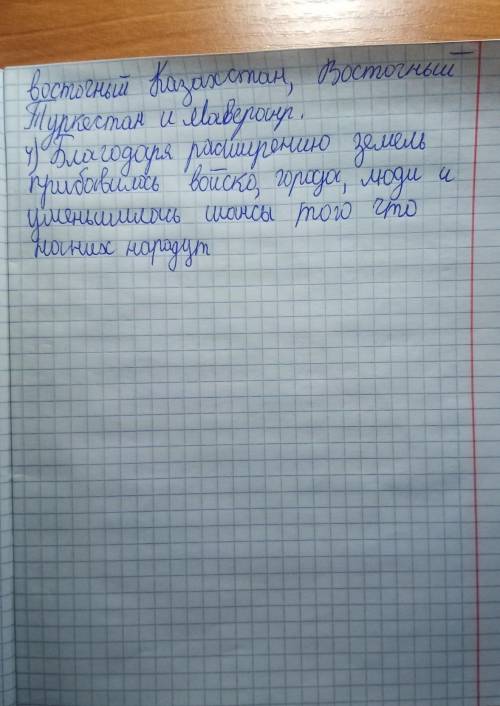 восточный Казахстан, Восточный
Туркестан и Мавероннр.
4) Благодаря расширению земель
прибавилось войско, города, люди и
уменьшилось шансы того что
на них нападут